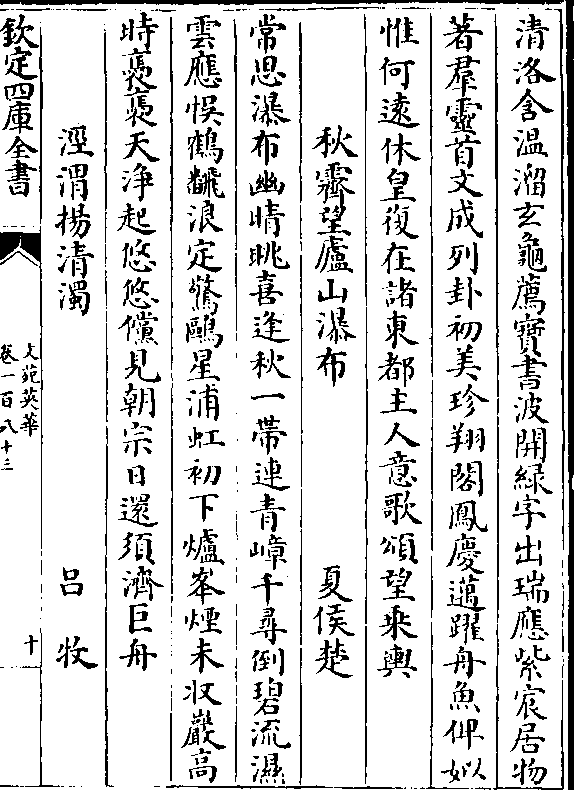 清洛含温溜玄龜薦寶書波開緑字出瑞應紫宸居物
著羣靈首文成列卦初美珍翔閣鳳慶邁躍舟魚俾姒
惟何逺休皇復在諸東都主人意歌頌望乘輿
秋霽望廬山瀑布 夏侯楚
常思瀑布幽晴眺喜逢秋一帶連青嶂千尋倒碧流濕
雲應悞鶴翻浪定驚鷗星浦虹初下爐峯煙未収巖高
時褭褭天浄起悠悠儻見朝宗日還須濟巨舟
涇渭揚清濁 吕牧
欽定四庫全書
文苑英華
卷一百八十三
十